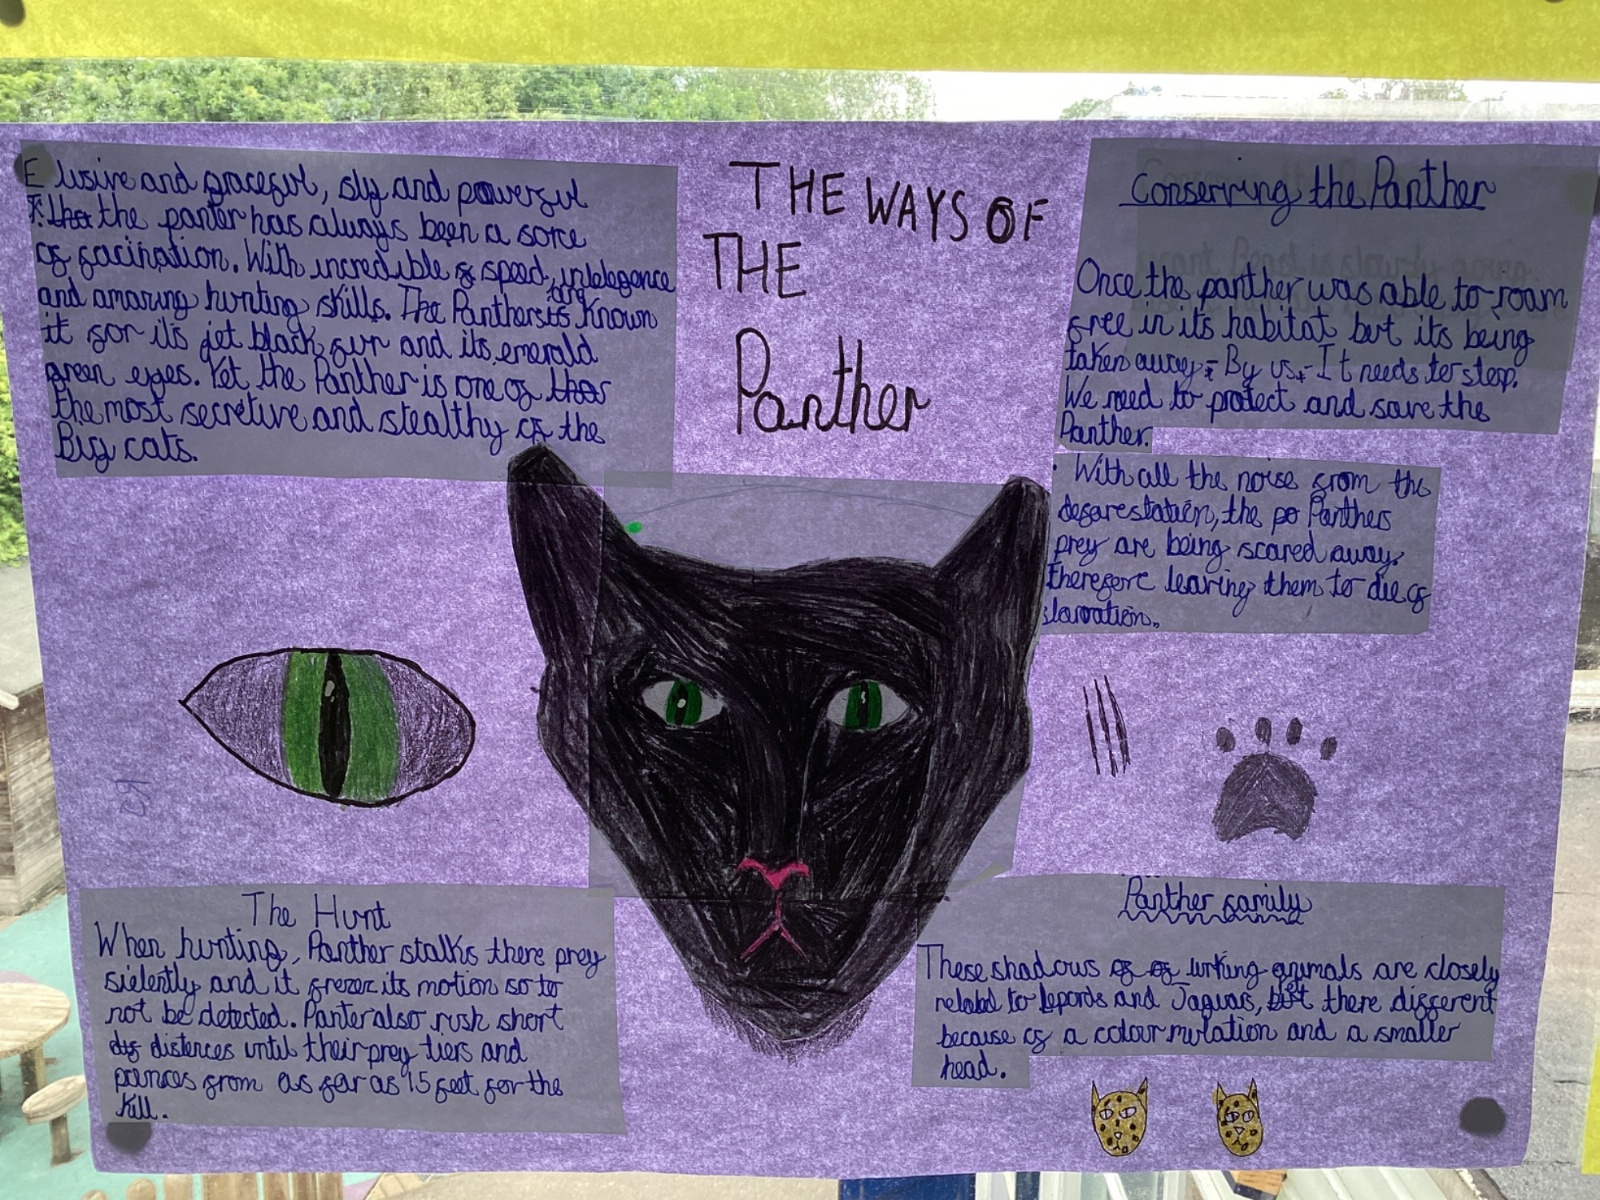 Elusive and graceful, sly and powerful
the panter has always been a sorce
of facination. With incredible speed, intelegence
and amazing hunting skills. The Panthers are Known
it for its jet black fur and its emerald
green eyes. Yet the Panther is one of
the most secretive and stealthy of the
Big cats.
THE WAYS OF
THE
Panther
Conserving the Panther
Once the panther was able to roam
free in its habitat but its being
taken away - By us - It needs to stop.
We need to protect and save the
Panther.
With all the noise from the
deforestation, the Panthers
prey are being scared away.
therefore leaving them to die of
starvation.
The Hunt
When hunting, Panther stalks there prey
sielently and it frezez its motion so to
not be detected. Panter also rush short
distences until their prey tiers and
pounces from as far as 15 feet for the
kill.
Panther family
These shadows of lurking animals are closely
related to lepords and Jaguars, but there different
because of a colour mutation and a smaller
head.